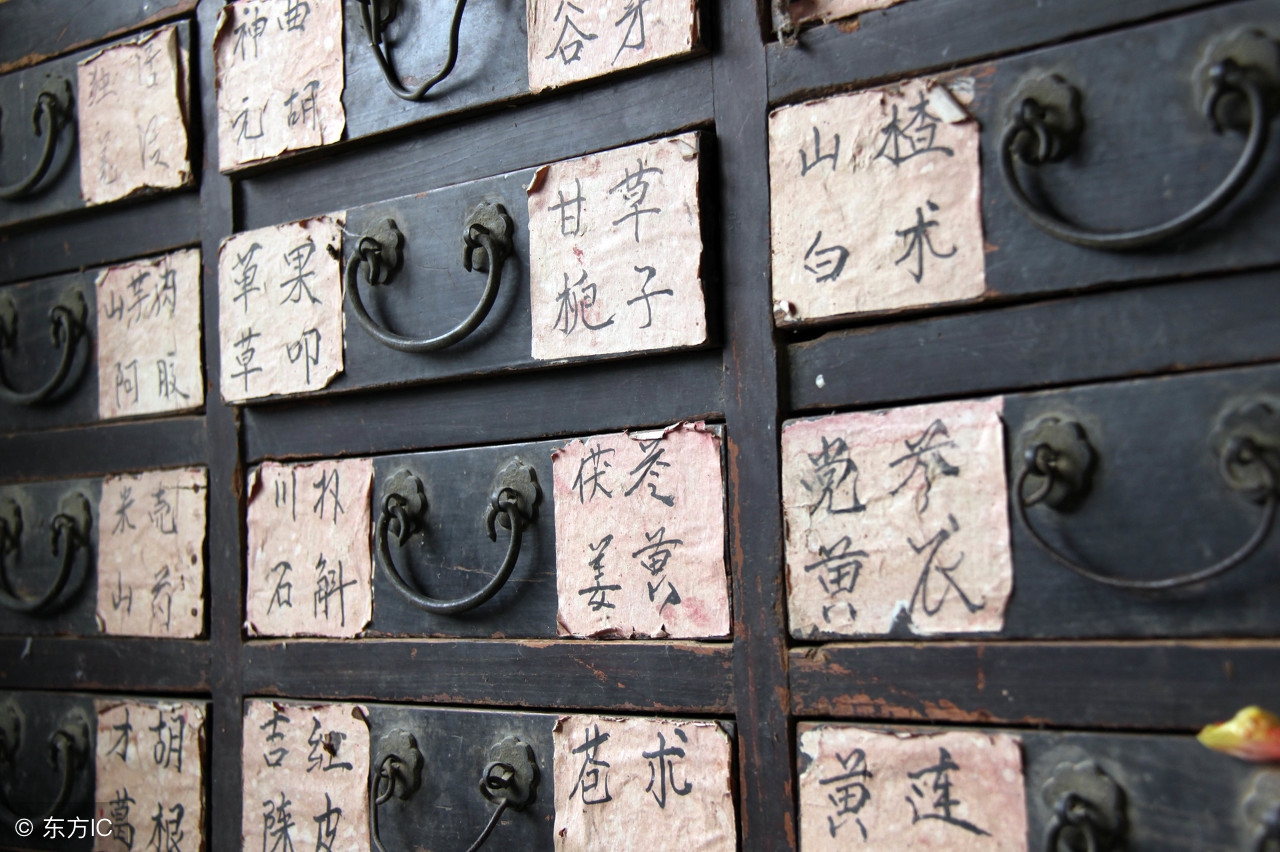 独活
羌活
神曲
元胡
谷
山萸肉
阿胶
草果
草叩
甘草
栀子
山楂
白术
米壳
山药
川朴
石斛
茯苓
姜黄
党参
黄
才胡
葛根
吉红
陈皮
苍术
黄连
© 东方IC